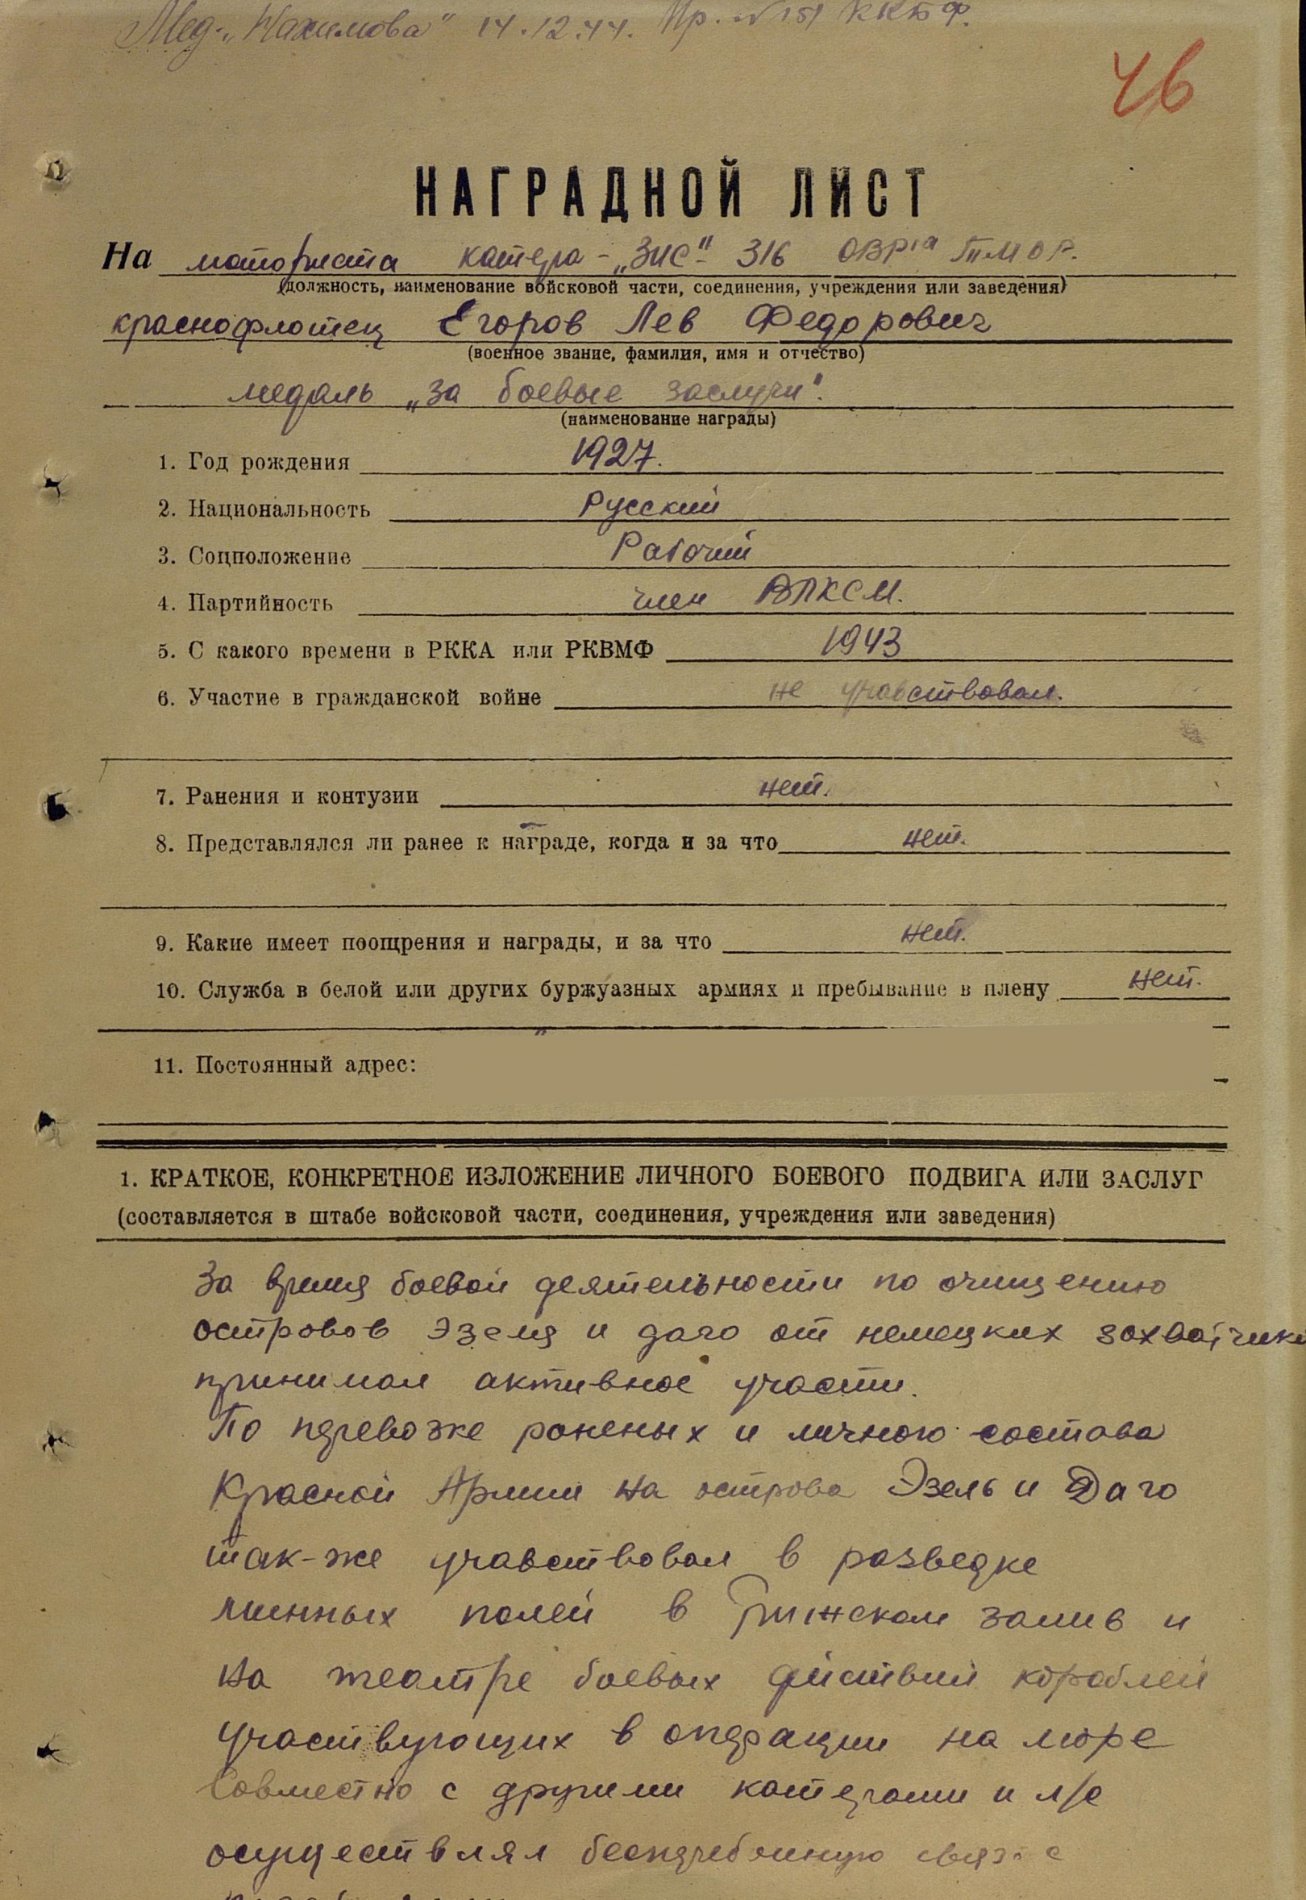 Мед. „Нахимова" 14.12.44. Пр. № 151 ККБФ.
46
НАГРАДНОЙ ЛИСТ
На моториста катера - „ЗИС" - 316 ОВР'а ТМОР.
(должность, наименование войсковой части, соединения, учреждения или заведения)
краснофлотец Егоров Лев Федорович
(военное звание, фамилия, имя и отчество)
медаль „за боевые заслуги".
(наименование награды)
1. Год рождения 1927.
2. Национальность Русский
3. Соцположение Рабочий
4. Партийность член ВЛКСМ.
5. С какого времени в РККА или РКВМФ 1943
6. Участие в гражданской войне не учавствовал.
7. Ранения и контузии нет.
8. Представлялся ли ранее к награде, когда и за что нет.
9. Какие имеет поощрения и награды, и за что нет.
10. Служба в белой или других буржуазных армиях и пребывание в плену нет.
11. Постоянный адрес:
1. КРАТКОЕ, КОНКРЕТНОЕ ИЗЛОЖЕНИЕ ЛИЧНОГО БОЕВОГО ПОДВИГА ИЛИ ЗАСЛУГ
(составляется в штабе войсковой части, соединения, учреждения или заведения)
За время боевой деятельности по очищению
островов Эзеля и даго от немецких захватчико
принимал активное участи.
По перевозке раненых и личного состава
Красной Армии на острова Эзель и Даго
так-же учавствовал в разведке
минных полей в Рижском залив и
на театре боевых действий кораблей
участвующих в операции на море
Совместно с другими катерами и л/с
осуществлял бесперебойную связь с